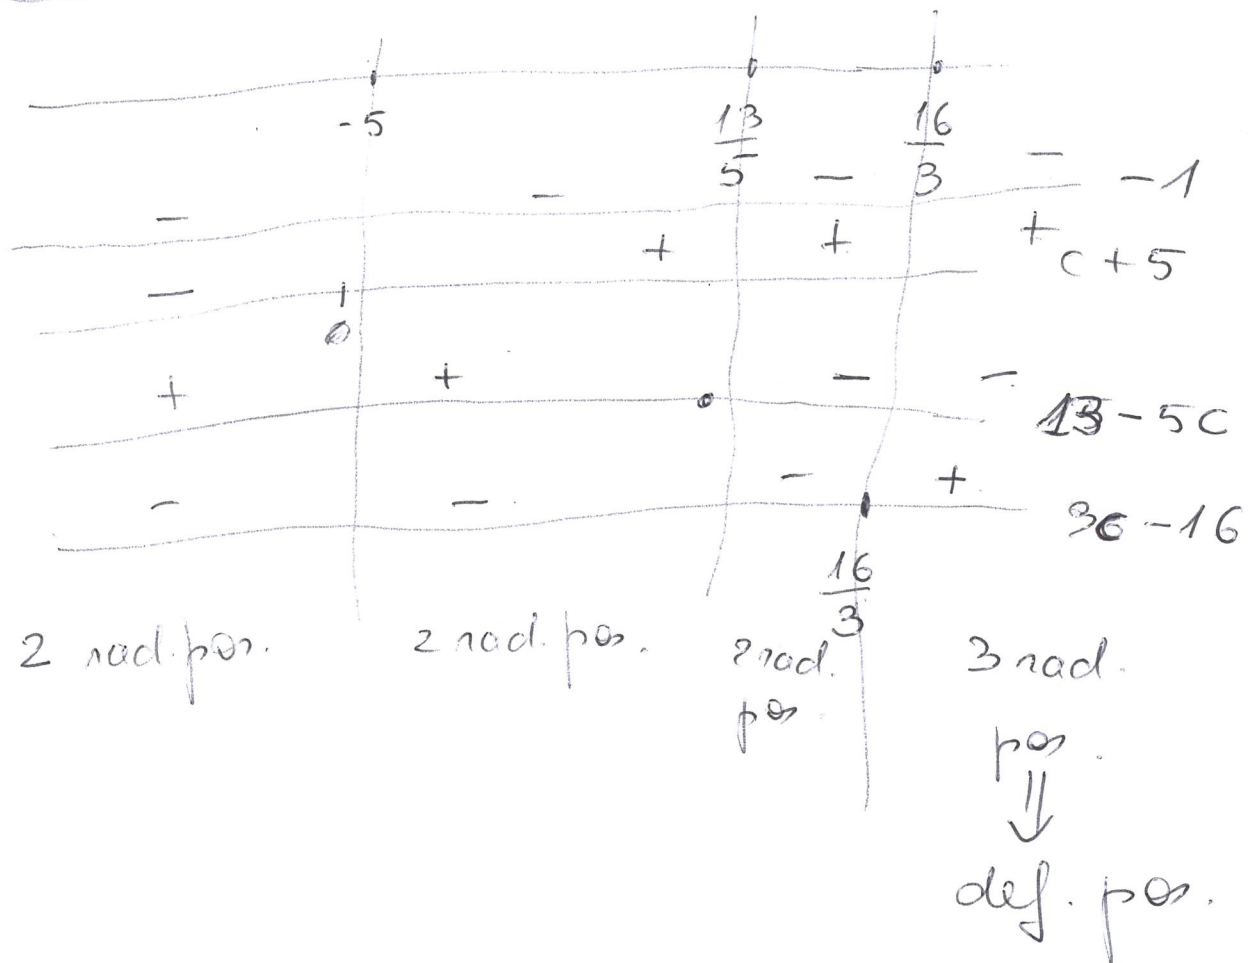 -5 13/5 16/3
- - - - -1
- + + + c+5
0
+ + - - 13-5c
- - - + 3c-16
16/3
2 rad. pos. 2 rad. pos. 2 rad. pos. 3 rad. pos.
⇓
def. pos.